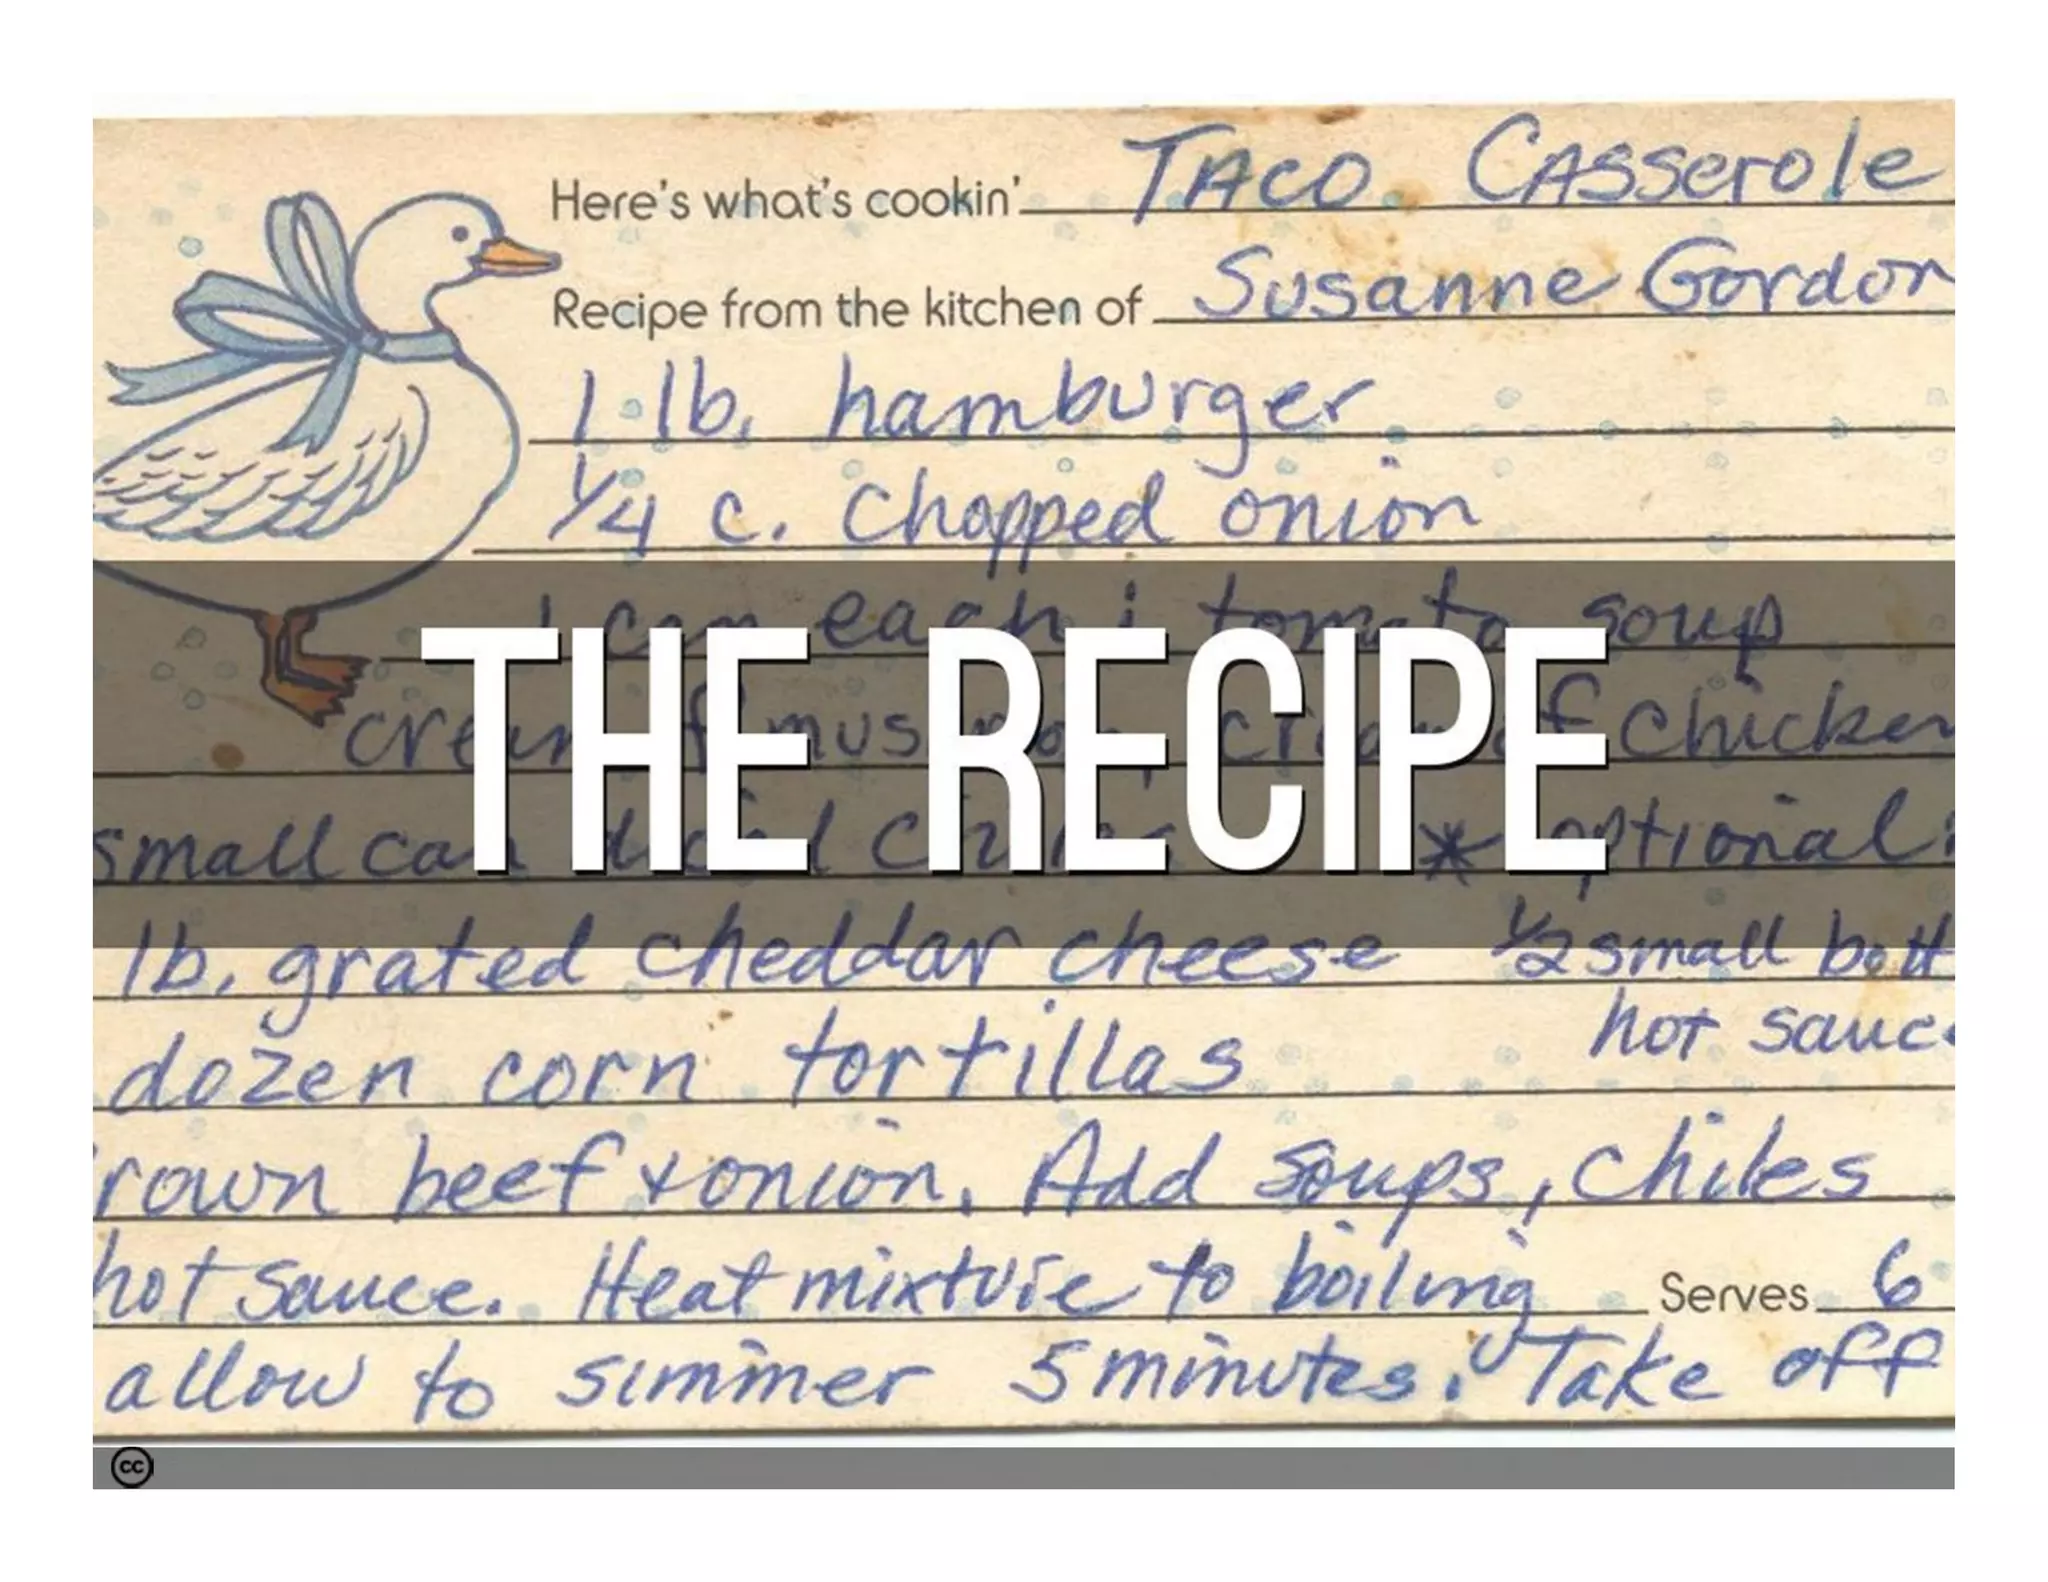 Here's what's cookin' TACO CASSerole
Recipe from the kitchen of Susanne Gordon
1 lb. hamburger
1/4 c. chopped onion
1 can each: tomato soup
THE RECIPE
cream of mushroom, cream of chicken
small can diced chiles * optional:
lb. grated cheddar cheese 1/2 small bott
hot sauce
dozen corn tortillas
rown beef + onion. Add soups, chiles
hot sauce. Heat mixture to boiling Serves 6
allow to simmer 5 minutes. Take off
cc